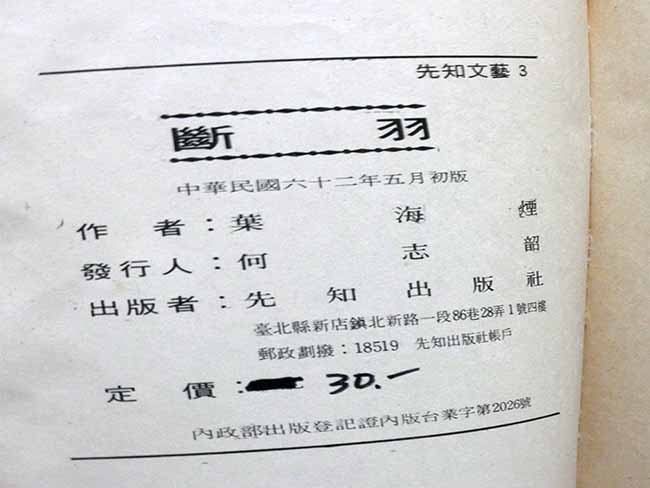 先知文藝 3
斷羽
中華民國六十二年五月初版
作者：葉海煙
發行人：何志韶
出版者：先知出版社
臺北縣新店鎮北新路一段86巷28弄1號四樓
郵政劃撥：18519 先知出版社帳戶
定價：30.—
內政部出版登記證內版台業字第2026號